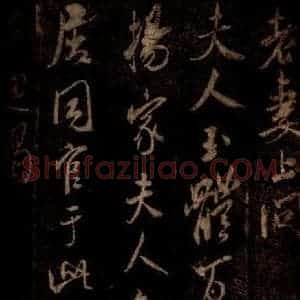 老妻上问
夫人玉體万
楊家夫人
居同官于此
Shufaziliao.COM